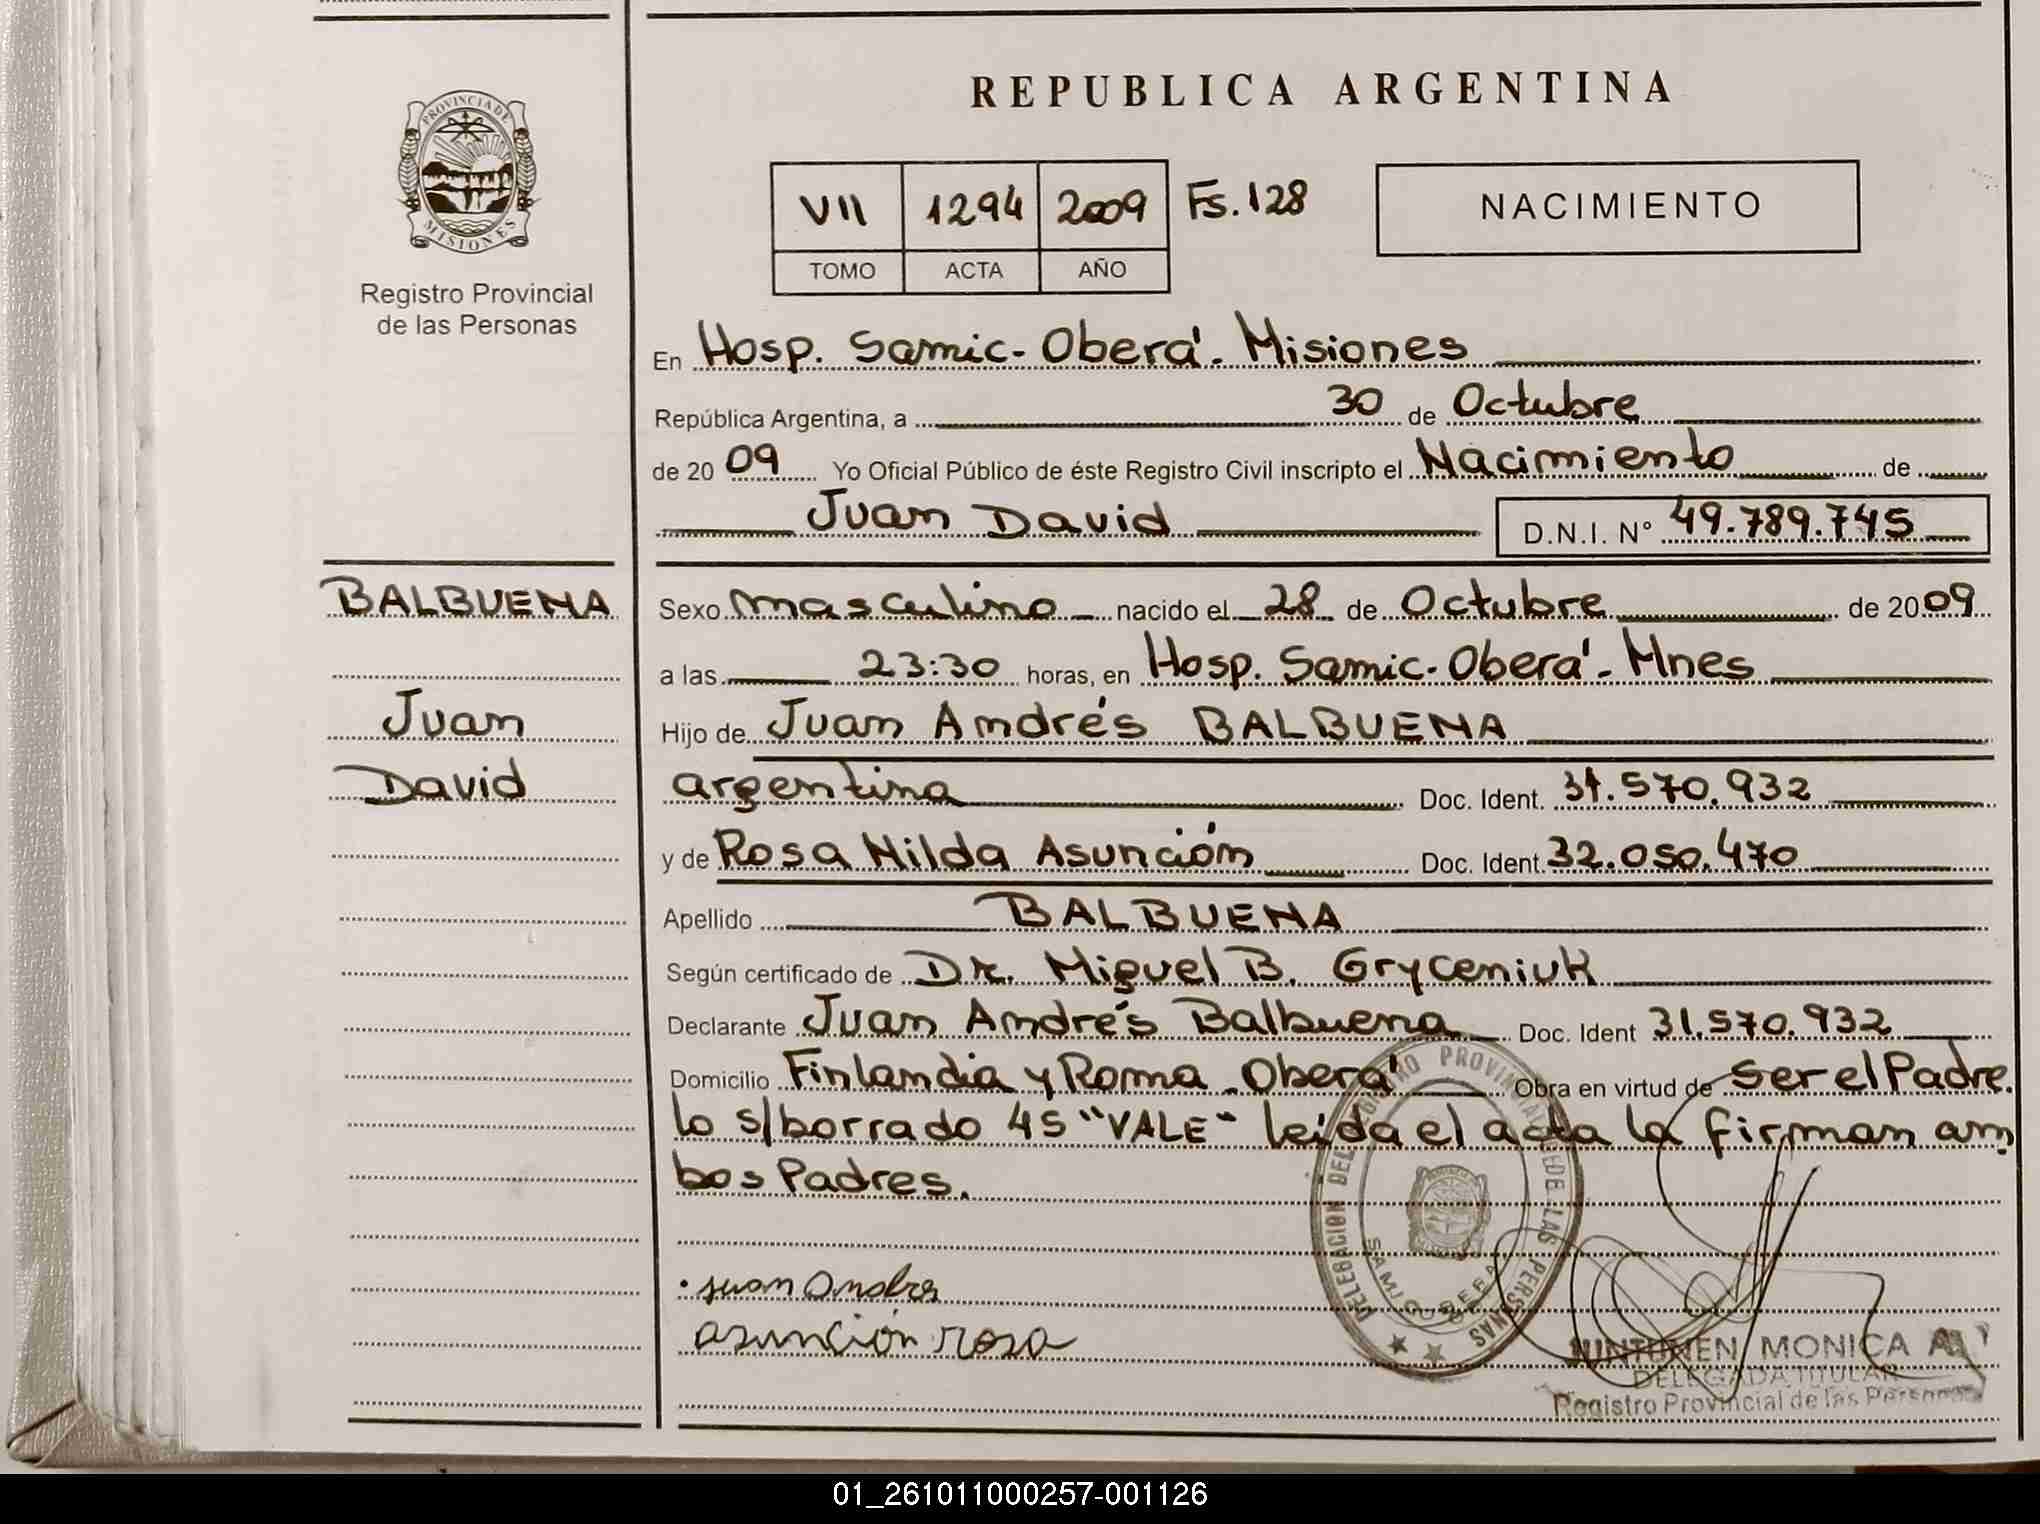 REPUBLICA ARGENTINA
PROVINCIA DE
MISIONES
Registro Provincial
de las Personas
VII 1294 2009 Fs. 128
TOMO ACTA AÑO
NACIMIENTO
En Hosp. Samic - Oberá - Misiones
República Argentina, a 30 de Octubre
de 2009 Yo Oficial Público de éste Registro Civil inscripto el Nacimiento de
Juan David D.N.I. Nº 49.789.745
BALBUENA
Juan
David
Sexo masculino nacido el 28 de Octubre de 2009
a las 23:30 horas, en Hosp. Samic - Oberá - Mnes
Hijo de Juan Andrés BALBUENA
argentina Doc. Ident. 31.570.932
y de Rosa Nilda Asunción Doc. Ident. 32.050.470
Apellido BALBUENA
Según certificado de Dr. Miguel B. Gryceniuk
Declarante Juan Andrés Balbuena Doc. Ident 31.570.932
Domicilio Finlandia y Roma - Oberá Obra en virtud de ser el Padre.
lo s/borrado 45 "VALE" leída el acta la firman am
bos Padres.
DELEGACION DEL REGISTRO PROVINCIAL DE LAS PERSONAS
SAMIC OBERA
juan Andres
asunción rosa
MONICA A.
DELEGADA TITULAR
Registro Provincial de las Personas
01_261011000257-001126